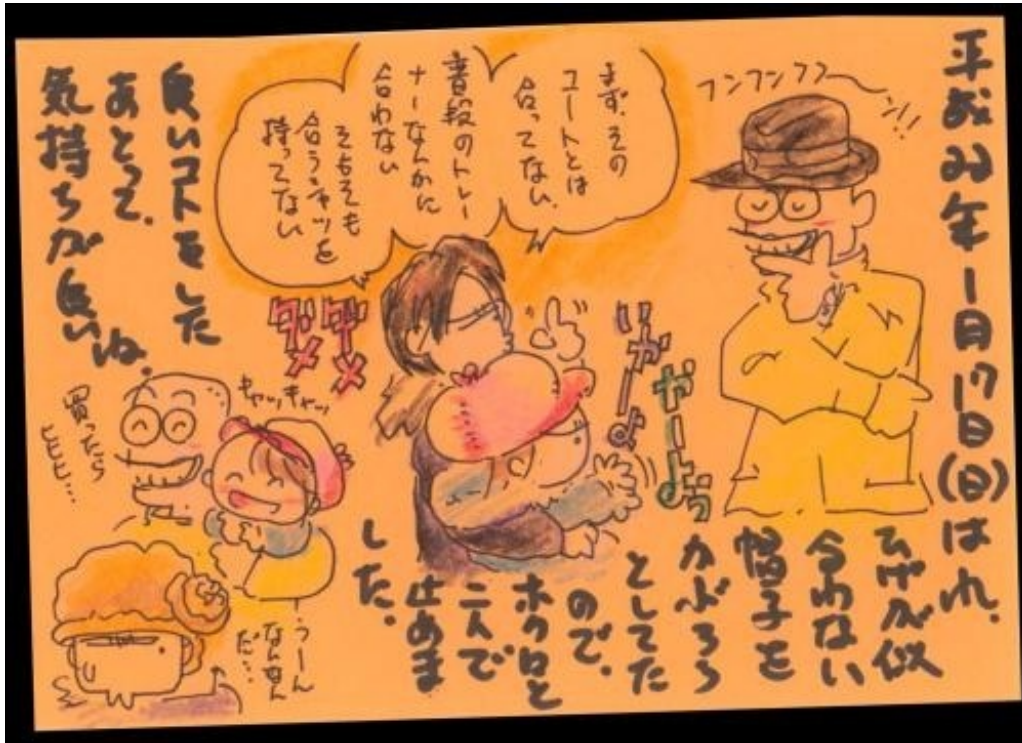 平成22年1月17日(日)はれ。
ひげが似
合わない
帽子を
かぶろう
としてた
ので、
ホクロと
二人で
止めま
した。
フンフンフフ〜ン!!
まず、その
コートとは
合ってない、
普段のトレー
ナーなんかに
合わない
そもそも
合うシャツを
持ってない
ダメ
ダメ
りがーよ
やーよっ
良いコトをした
あとって、
気持ちが良いね。
買ったら
ヒヒヒ…
キャッキャッ
うーん
なんなん
だ…